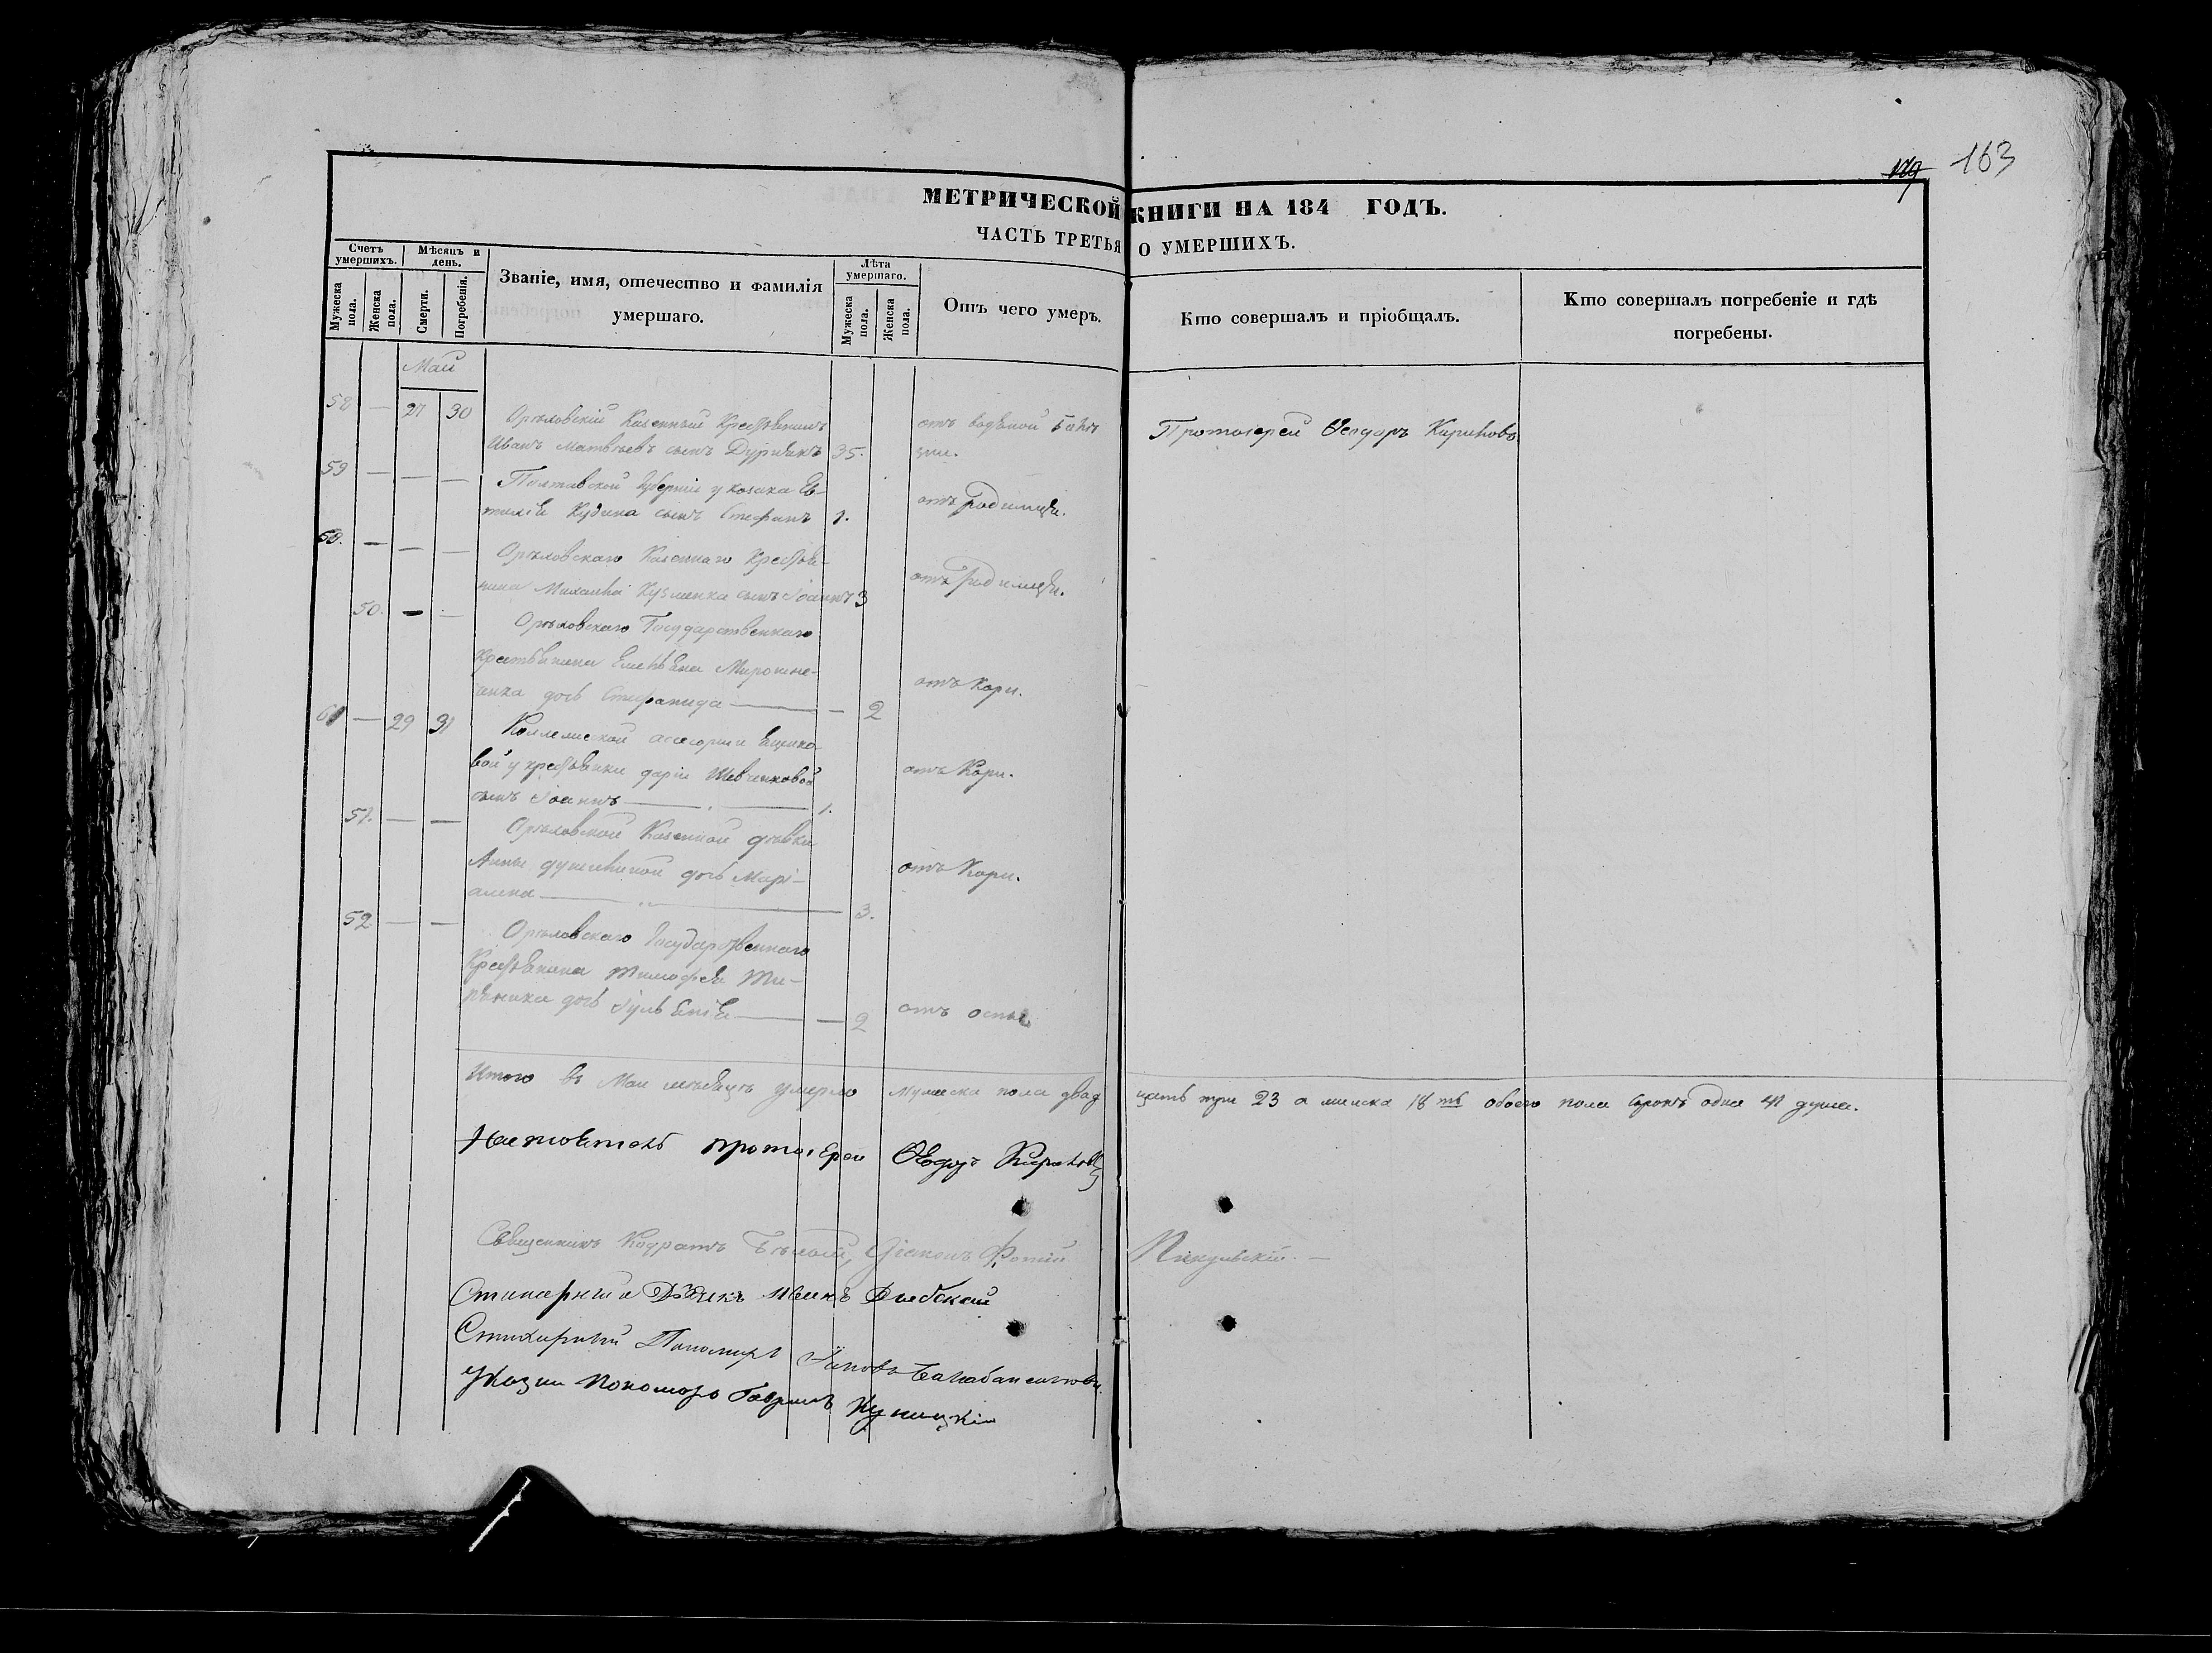 179 163
МЕТРИЧЕСКОЙ КНИГИ НА 184 ГОДЪ.
ЧАСТЬ ТРЕТЬЯ О УМЕРШИХЪ.
Счетъ умершихъ.
Мужеска пола.
Женска пола.
Мѣсяцъ и день.
Смерти.
Погребенія.
Званіе, имя, отечество и фамилія умершаго.
Лѣта умершаго.
Мужеска пола.
Женска пола.
Отъ чего умеръ.
Кто совершалъ и пріобщалъ.
Кто совершалъ погребеніе и гдѣ погребены.
Май
58 — 27 30 Орѣловскій Казенный Крестьянинъ
Иванъ Матвѣевъ сынъ 35. отъ водяной
Протоіерей Ѳеодоръ
59 — — — Полтавской Губерніи у козака Ев-
тихія Кудина сынъ Стефанъ 1. отъ родимца.
60. — — — Орѣловскаго Казеннаго Крестья-
нина Михаила Кузменка сынъ Іоаннъ 3 отъ родимца.
50. — — Орѣловскаго Государственнаго
Крестьянина Емельяна Мирошни-
ченка дочь Стефанида — 2 отъ Кори.
61 — 29 31 Коллежской асесорши
вой у крестьянки Даріи Шевченковой
сынъ Іоаннъ — 1. отъ Кори.
51. — — Орѣловской Казенной дѣвки
Анны дочь Марі-
амна — 3. отъ Кори.
52 — — Орѣловскаго Государственнаго
Крестьянина Тимофея
дочь Іуліанія — 2 отъ оспы
Итого въ Маи мѣсяцѣ умерло мужеска пола двад цать три 23 а женска 18ть обоего пола сорокъ одна 41 душа.
Настоятель протоіерей Ѳеодоръ
Священникъ Кодратъ Бѣлый, Діаконъ Фотій
Стихарный Дьячекъ
Стихарный Пономарь Яковъ
Указный пономарь Гавріилъ Куницкій